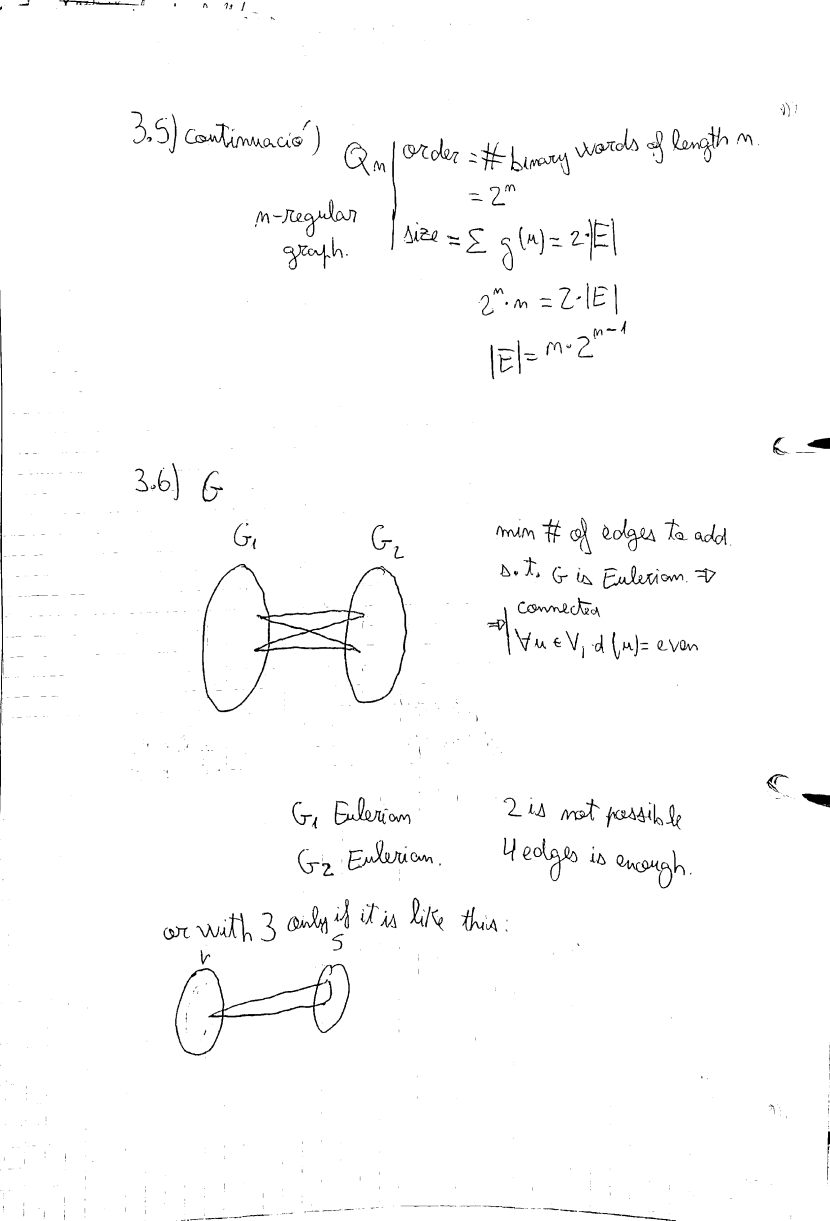 3.5) continuació)
Qn | order = # binary words of length n.
= 2^n
n-regular
graph.
size = Σ g(u) = 2·|E|
2^n · n = 2·|E|
|E| = n·2^{n-1}
3.6) G
G1 G2
min # of edges to add
s.t. G is Eulerian ⇒
⇒ | connected
∀u ∈ V, d(u) = even
G1 Eulerian
G2 Eulerian.
2 is not possible
4 edges is enough.
or with 3 only if it is like this:
r s